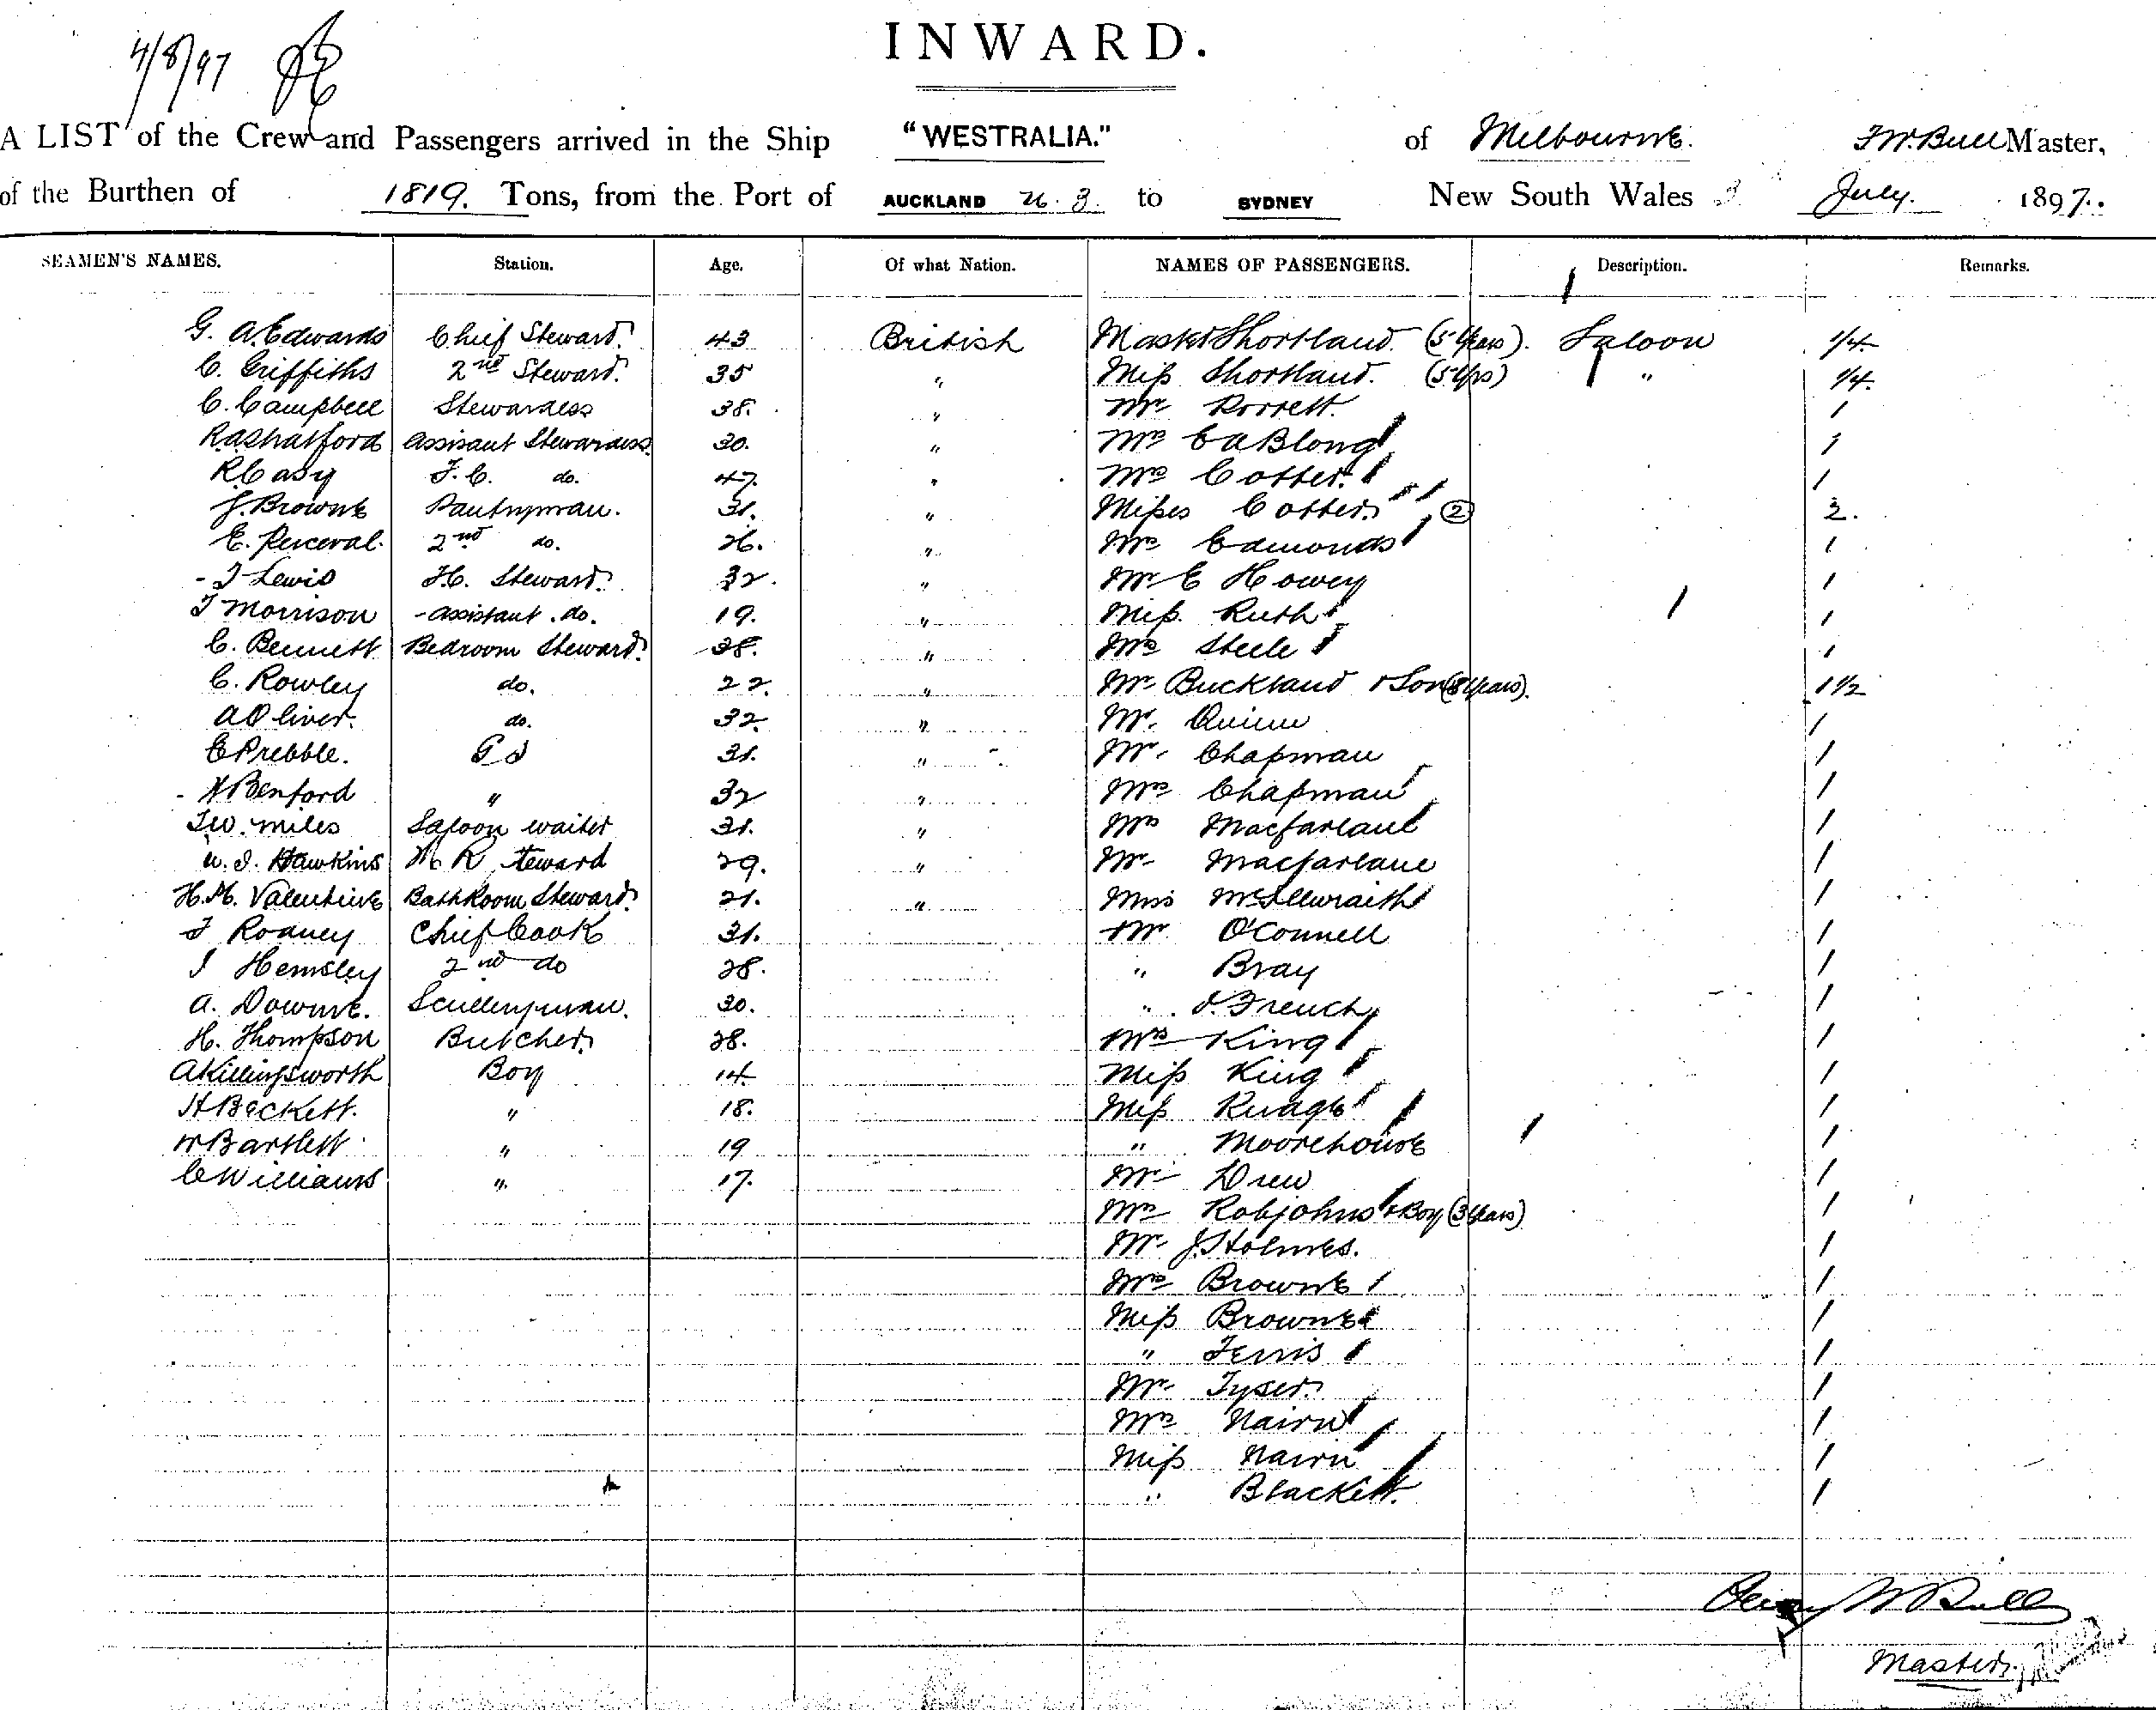 4/8/97
INWARD.
A LIST of the Crew and Passengers arrived in the Ship "WESTRALIA." of Melbourne. Master,
of the Burthen of 1819. Tons, from the Port of AUCKLAND to SYDNEY New South Wales 3 July. 1897.
SEAMEN'S NAMES. Station. Age. Of what Nation. NAMES OF PASSENGERS. Description. Remarks.
G. A. Edwards Chief Steward. 43 British Master Shortland. (5 Years). Saloon 1/4
C. Griffiths 2nd Steward. 35 " Miss Shortland. (5 Yrs) " 1/4.
C. Campbell Stewardess 38. " Mr Rorrett. 1
R A Shatford Assisant Stewardess. 30. " Mrs Blong 1
R Casy F. C. do. 47. " Mrs Cotter. 1
J. Browne Pantryman. 31. " Misses Cotter (2) 2.
E. Perceval. 2nd do. 26. " Mrs Edmonds 1
J Lewis F.C. Steward. 32. " Mr E Howey 1
T Morrison assistant. do. 19. " Miss. Ruth 1
C. Bennett Bedroom Steward. 38. " Mrs Steele 1
C. Rowley do. 22. " Mr Buckland & Son (8 Years). 1 1/2
A Oliver. do. 32. " Mr. Quinn 1
E Prebble. G S 31. " Mr. Chapman 1
H Benford " 32 " Mrs Chapman 1
T W. Miles Saloon waiter 31. " Mrs Macfarlane 1
W. J. Hawkins R steward 29. " Mr Macfarlane 1
H. M. Valentine Bath Room Steward. 21. " Miss McIlwraith 1
J Rodney Chief Cook 31. Mr O'Connell 1
J Hemsley 2nd do 28. " Bray 1
A. Downie. Sculleryman. 30. " J. French 1
H. Thompson Butcher 28. Mrs King 1
A Killingsworth Boy 14. Miss King 1
H Beckett. " 18. Miss 1
W Bartlett " 19 " Moorehouse 1
C Williams " 17. Mr Drew 1
Mrs Robjohns & Boy (3 Years) 1
Mr J. Holmes. 1
Mrs Browne 1
Miss Browne 1
" Ferris 1
Mr Tyser. 1
Mrs Nairn 1
Miss Nairn 1
" Blackett. 1
Henry W Bull
Master.